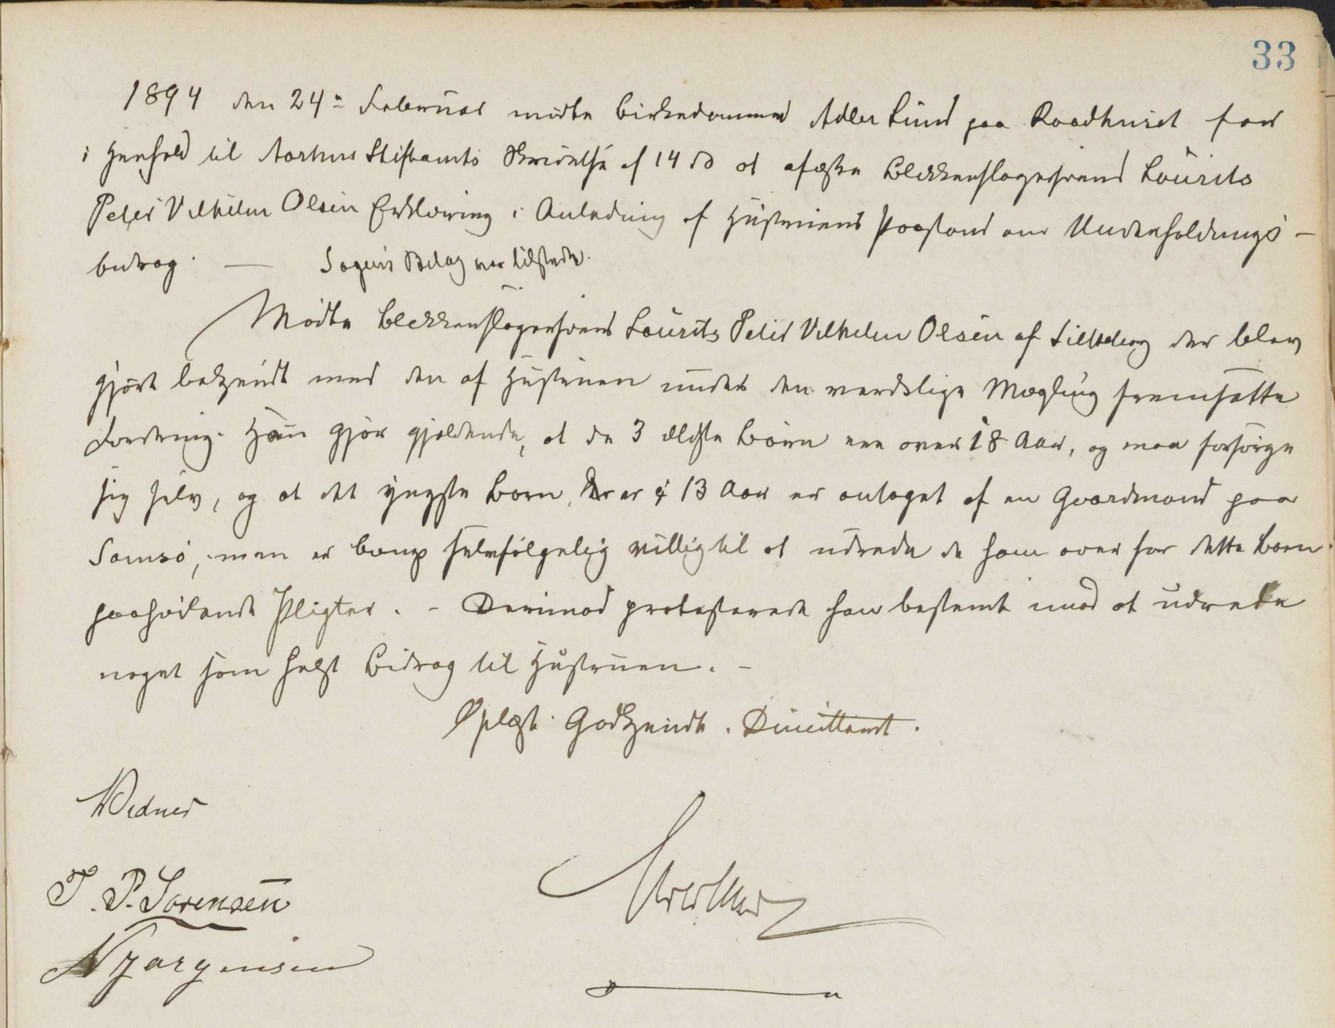 33
1894 den 24de Februar mødte Birkedommer Adler Lund paa Raadhuset for
i Henhold til Aarhus Stiftamts Skrivelse af 14 ds at afæske Blikkenslagersvend Laurits
Peter Vilhelm Olsen Erklæring i Anledning af Hustruens Paastand om Underholdnings-
bidrag. — Sagens Bilag var tilstede.
Mødte Blikkenslagersvend Laurits Peter Vilhelm Olsen af Silkeborg der blev
gjort bekjendt med den af Hustruen under den verdslige Mægling fremsatte
Fordring. Han gjør gjældende, at de 3 ældste Børn ere over 18 Aar, og maa forsørge
sig selv, og at det yngste Barn, der er 13 Aar er antaget af en Gaardmand paa
Samsø, men er Comp selvfølgelig villig til at udrede de ham over for dette Barn
paahvilende Pligter. - Derimod protesterede han bestemt imod at udrede
noget som helst Bidrag til Hustruen. -
Oplæst. Godkjendt. Dimitteret.
Vidner
T. P. Sørensen
N Jørgensen